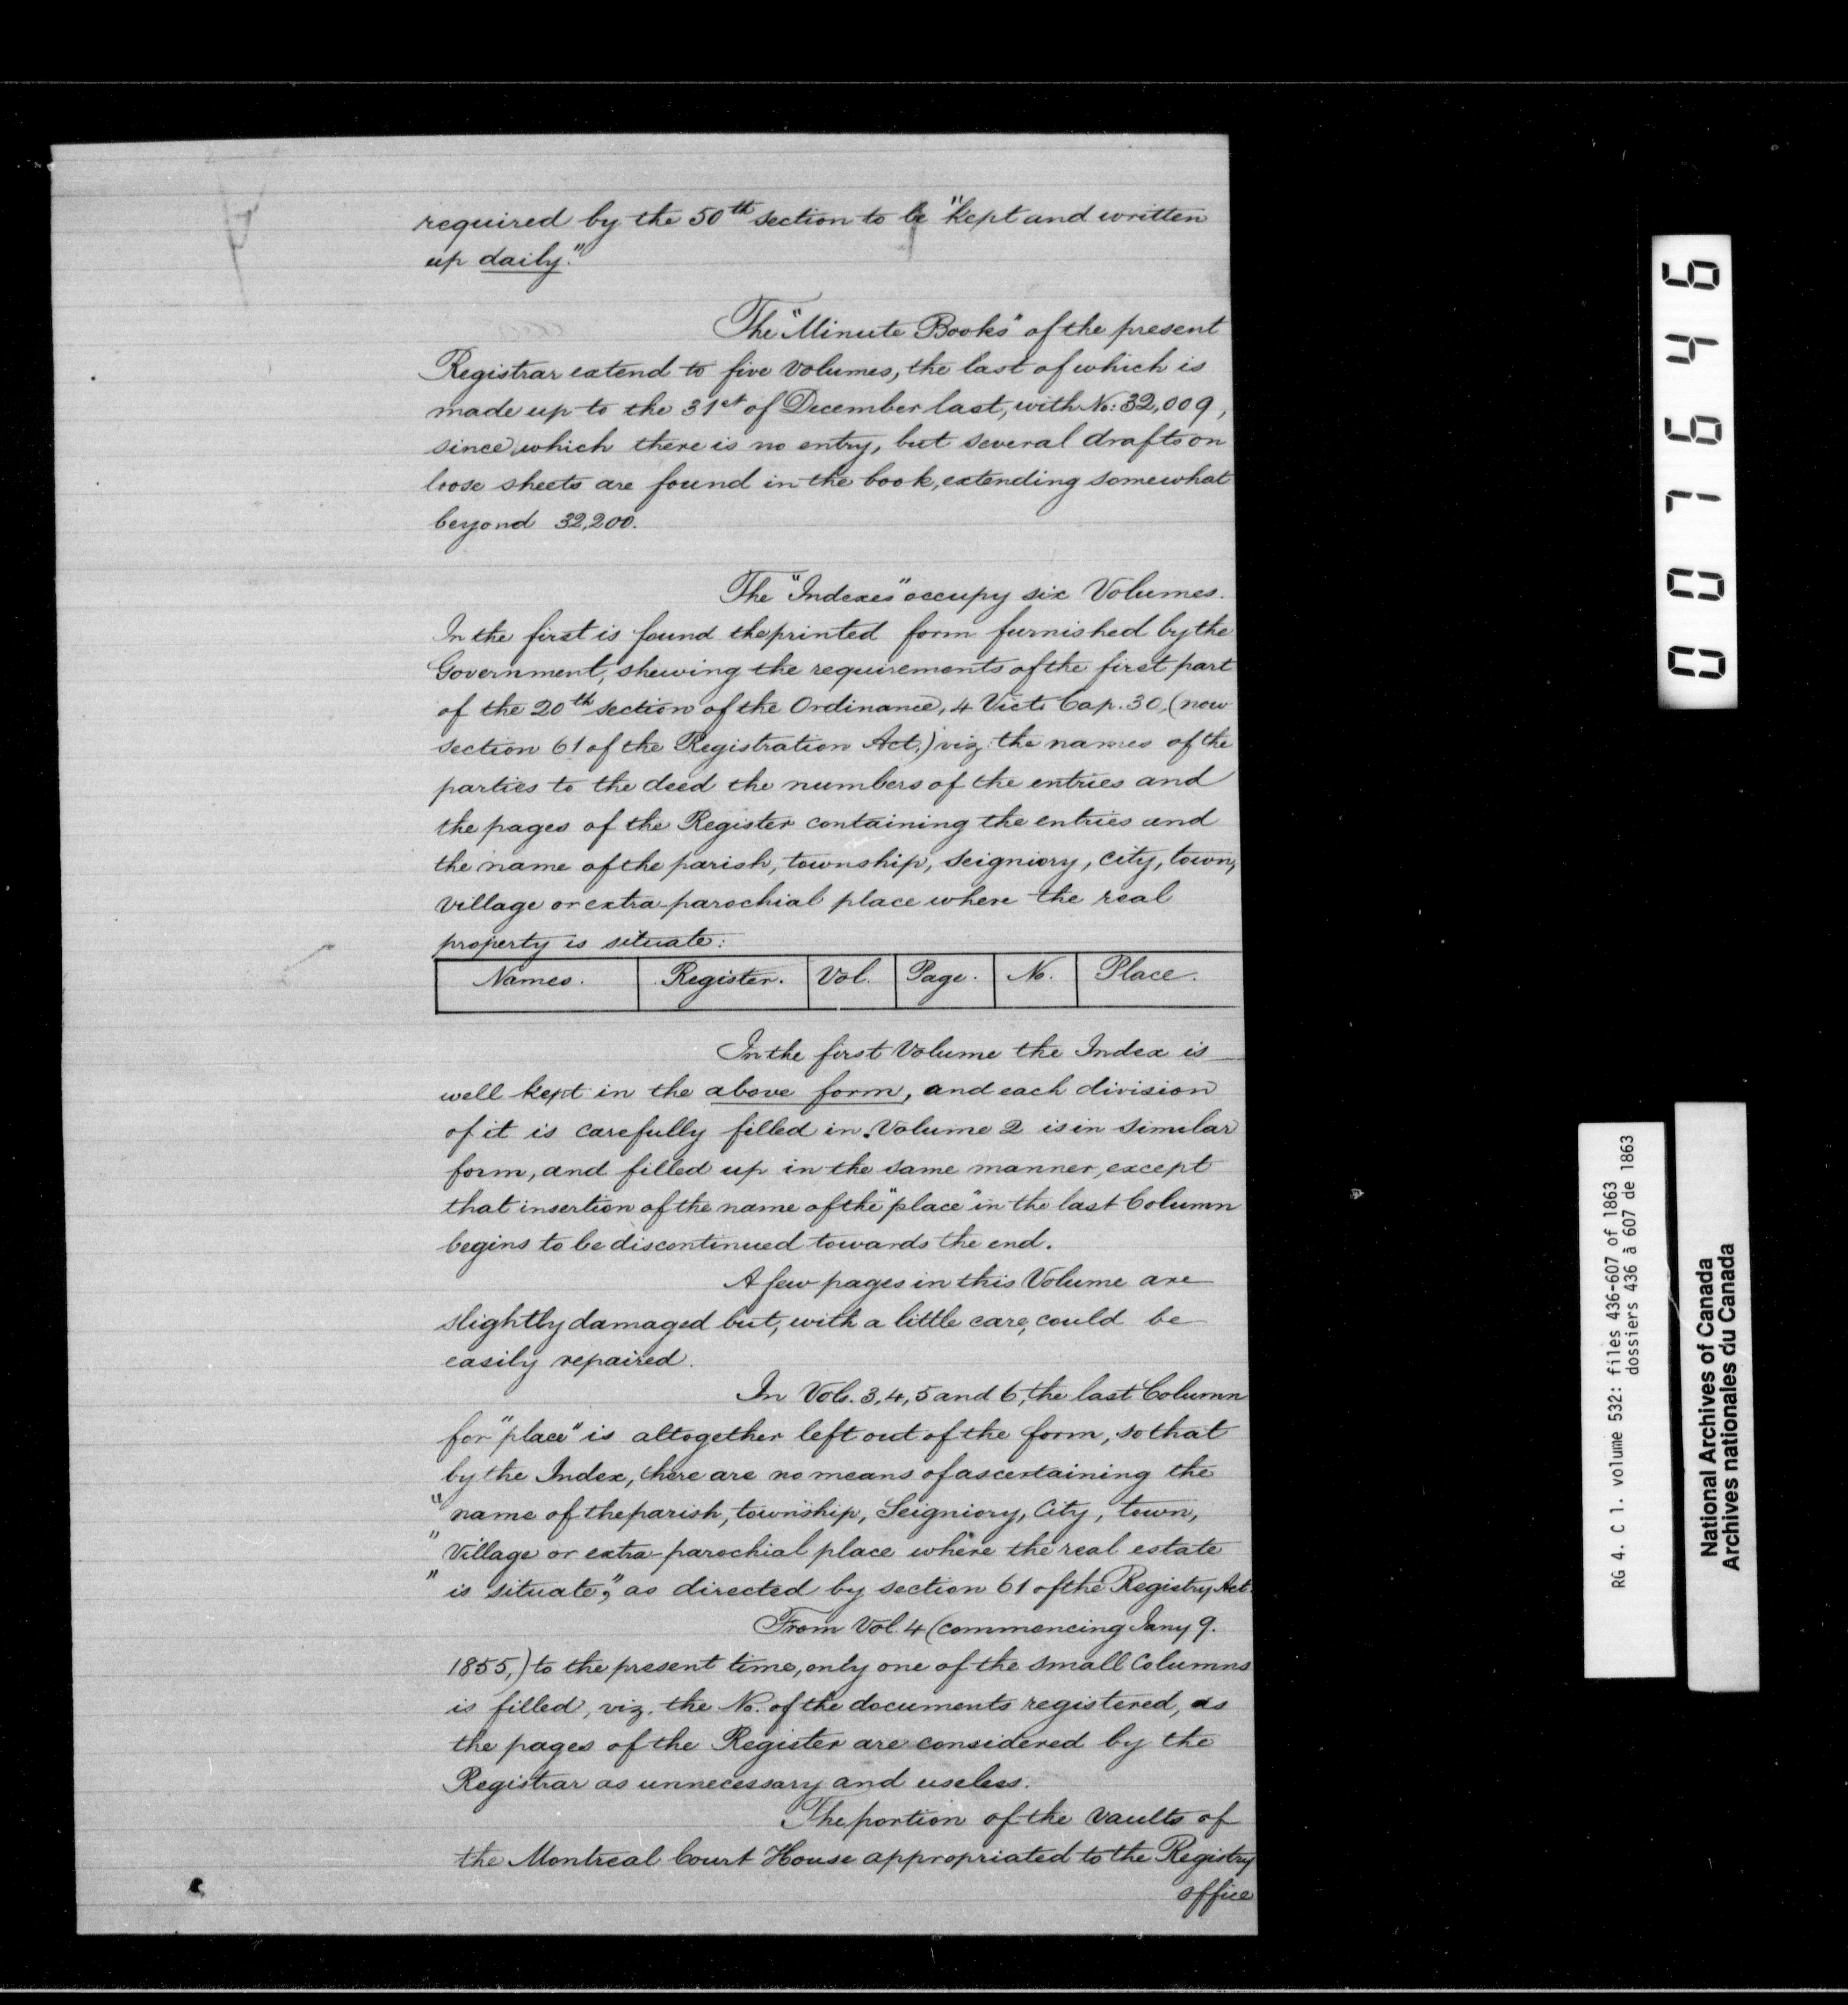 required by the 50th section to be "kept and written
up daily."
The "Minute Books" of the present
Registrar extend to five volumes, the last of which is
made up to the 31st of December last, with No: 32,009,
since which there is no entry, but several drafts on
loose sheets are found in the book, extending somewhat
beyond 32,200.
The "Indexes" occupy six Volumes.
In the first is found the printed form furnished by the
Government, shewing the requirements of the first part
of the 20th section of the Ordinance, 4 Vict. Cap. 30, (now
section 61 of the Registration Act,) viz: the names of the
parties to the deed the numbers of the entries and
the pages of the Register containing the entries and
the name of the parish, township, seigniory, city, town,
village or extra-parochial place where the real
property is situate:
Names. Register. Vol. Page. No. Place.
In the first Volume the Index is
well kept in the above form, and each division
of it is carefully filled in. Volume 2 is in similar
form, and filled up in the same manner, except
that insertion of the name of the "place" in the last Column
begins to be discontinued towards the end.
A few pages in this Volume are
slightly damaged but, with a little care, could be
easily repaired.
In Vols. 3, 4, 5 and 6, the last Column
for "place" is altogether left out of the form, so that
by the Index, there are no means of ascertaining the
"name of the parish, township, Seigniory, City, town,
"Village or extra-parochial place where the real estate
"is situate," as directed by section 61 of the Registry Act.
From Vol. 4 (commencing Jany 9.
1855,) to the present time, only one of the small Columns
is filled, viz. the No. of the documents registered, as
the pages of the Register are considered by the
Registrar as unnecessary and useless.
The portion of the vaults of
the Montreal Court House appropriated to the Registry
office
007646
RG 4. C 1. volume 532: files 436-607 of 1863
dossiers 436 à 607 de 1863
National Archives of Canada
Archives nationales du Canada